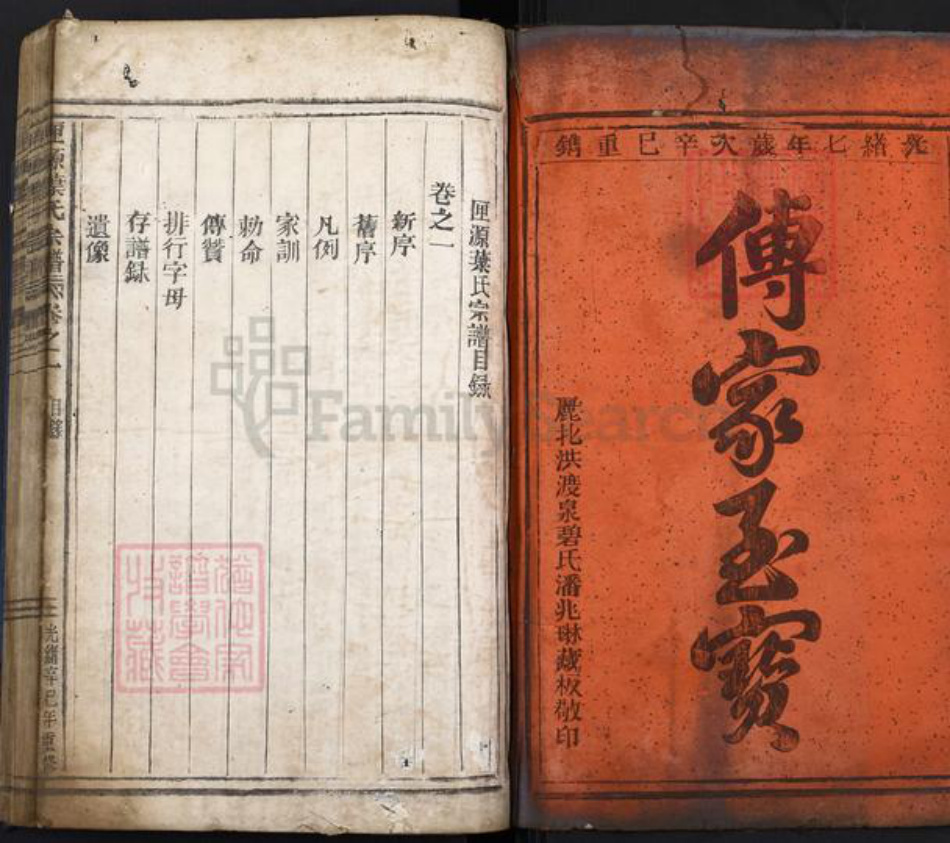 光緒七年歲次辛巳重鐫
傳家至寶
麗北洪渡泉碧氏潘兆琳藏板敬印
匣源葉氏宗譜目錄
卷之一
新序
舊序
凡例
家訓
勅命
傳贊
排行字母
存譜録
遺像
匣源葉氏宗譜 卷之一 目錄
光緒辛巳年重修
譜學會
收藏
FamilySearch